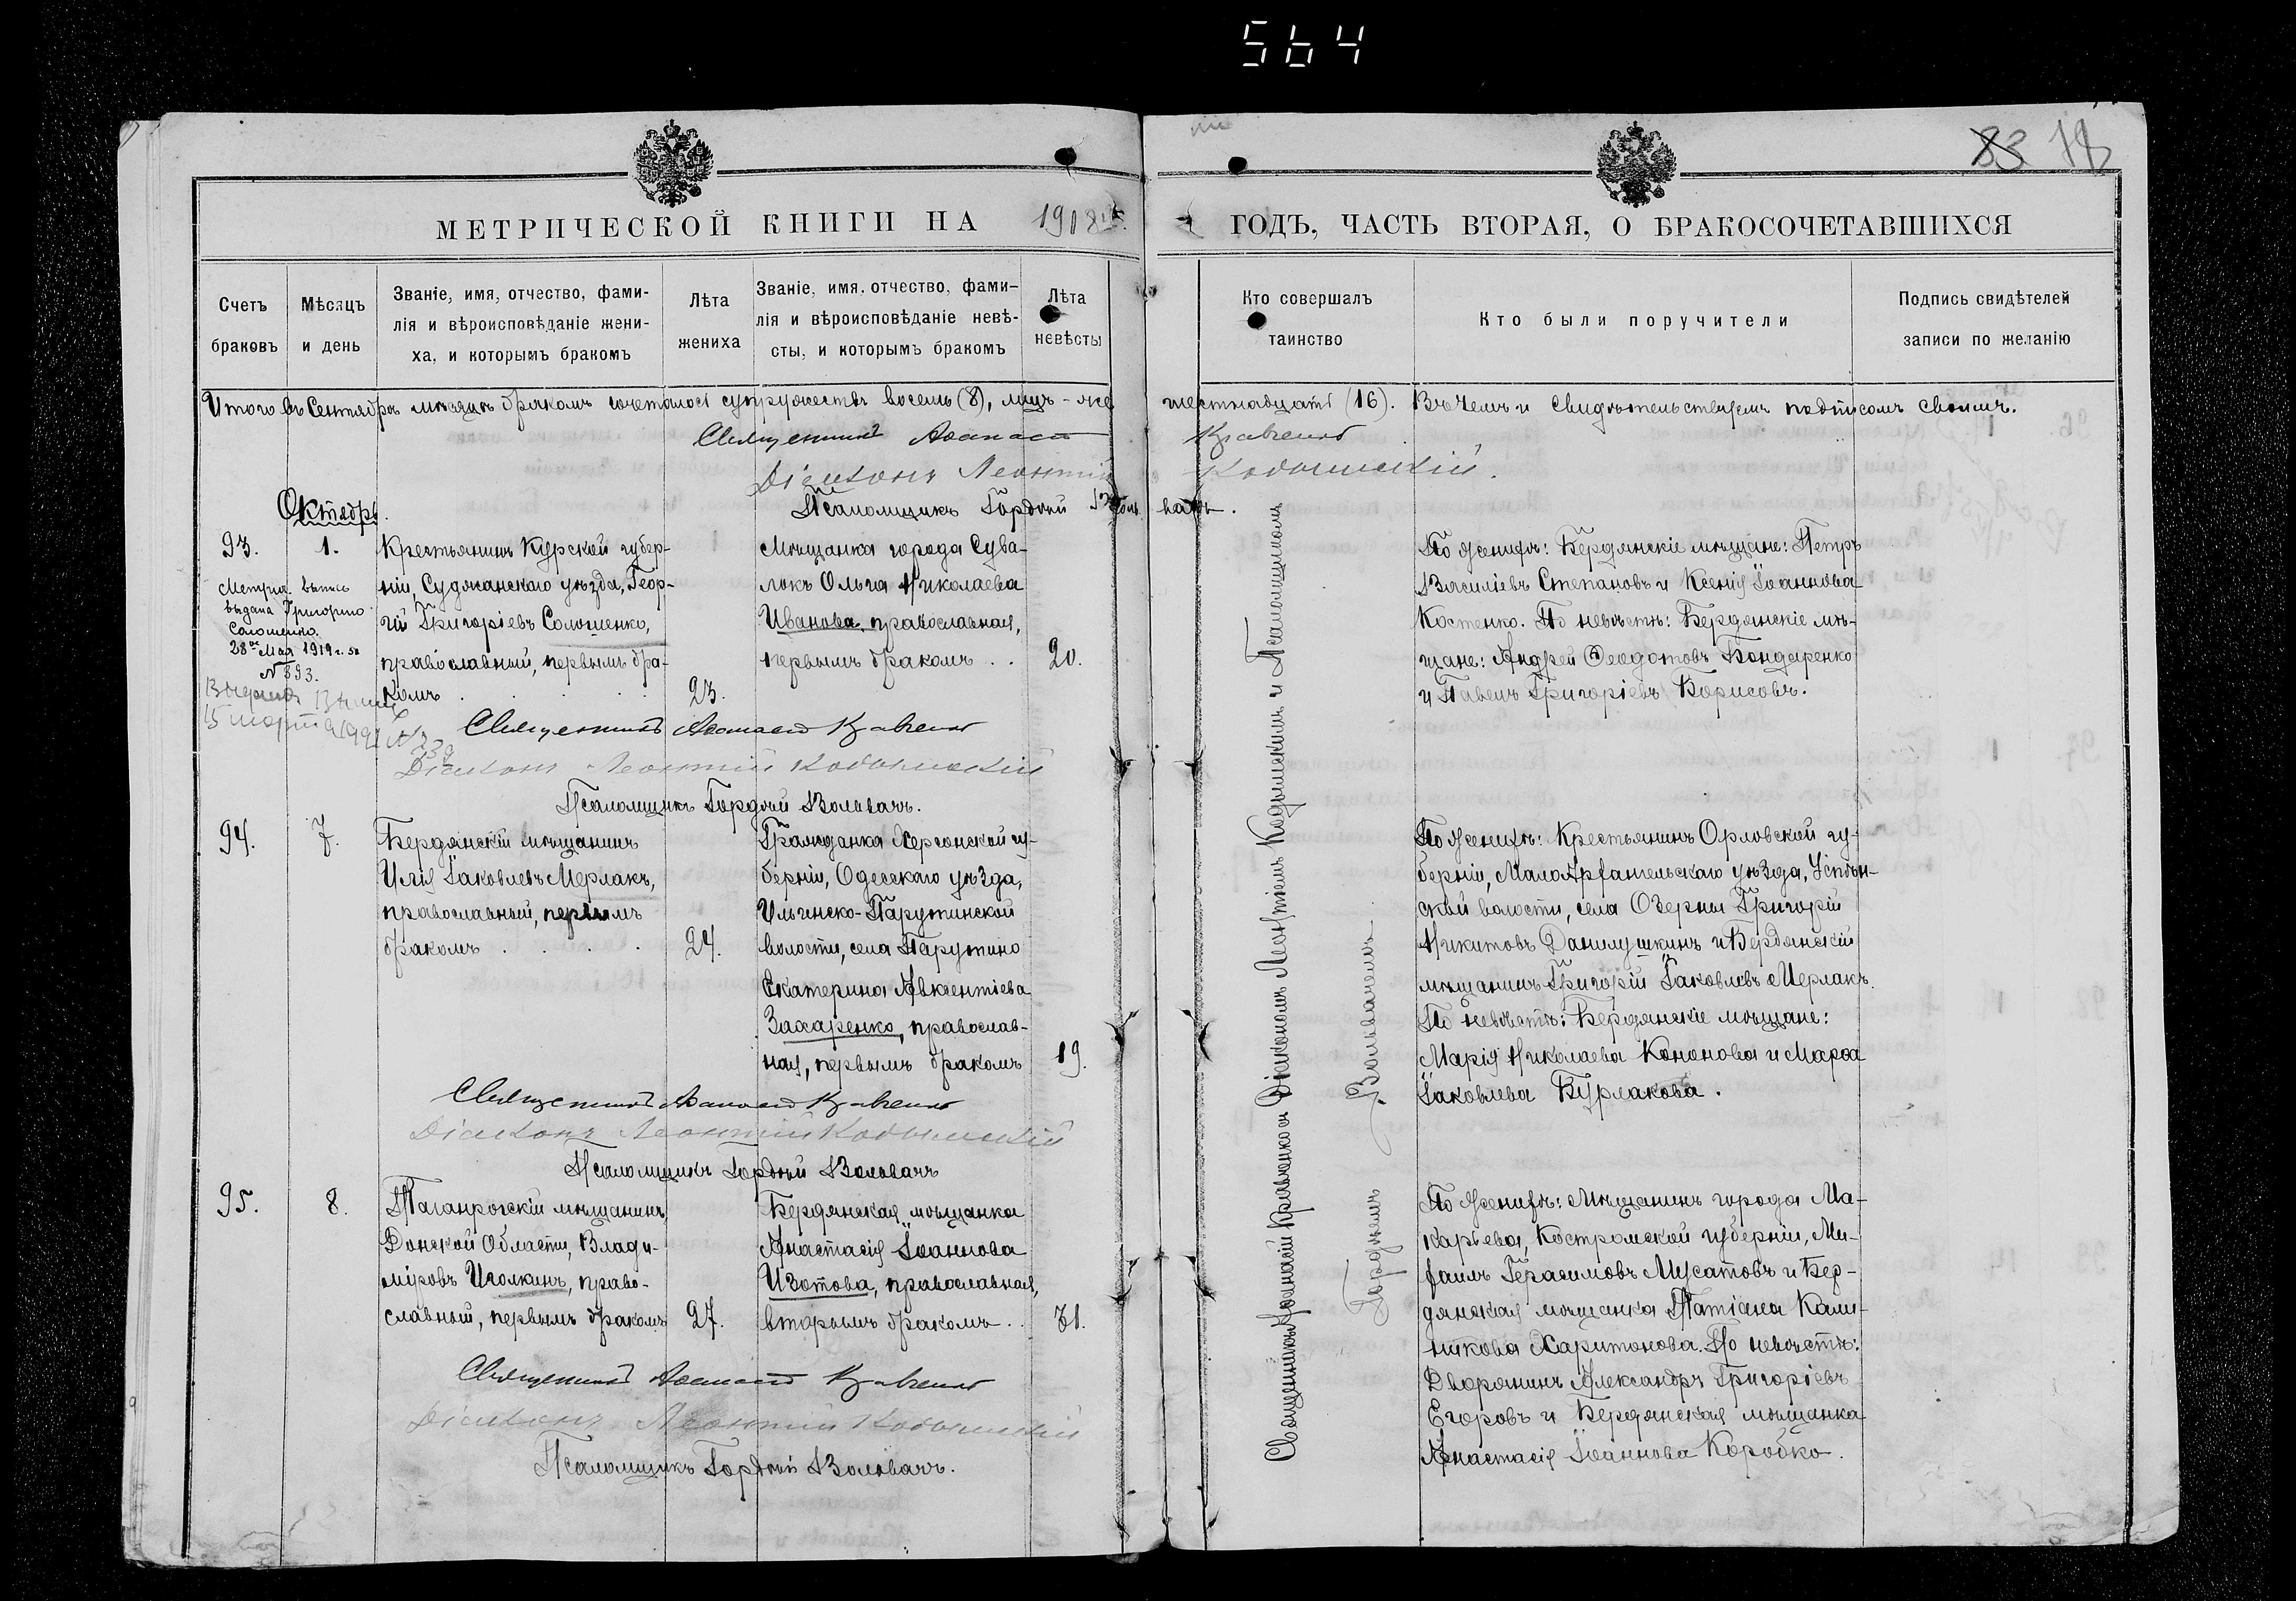 564
83 78
МЕТРИЧЕСКОЙ КНИГИ НА 1918й ГОДЪ, ЧАСТЬ ВТОРАЯ, О БРАКОСОЧЕТАВШИХСЯ
Счетъ
браковъ
Мѣсяцъ
и день
Званіе, имя, отчество, фами-
лія и вѣроисповѣданіе жени-
ха, и которымъ бракомъ
Лѣта
жениха
Званіе, имя, отчество, фами-
лія и вѣроисповѣданіе невѣ-
сты, и которымъ бракомъ
Лѣта
невѣсты
Кто совершалъ
таинство
Кто были поручители
Подпись свидѣтелей
записи по желанію
Итого въ Сентябрѣ мѣсяцѣ бракомъ сочеталось супружествъ восемь (8), лицъ-же шестнадцать (16). Въ чемъ и свидѣтельствуемъ подписомъ своимъ.
Священникъ Аѳанасій Кравченко
Діаконъ Леонтій
Псаломщикъ Гордій Вольвачъ.
Октябрь.
93.
1.
Метрич. выпись
выдана Григорію
Солошенко.
28го Мая 1919 г. за
№ 393.
15 марта
Крестьянинъ Курской губер-
ніи, Суджанскаго уѣзда, Геор-
гій Григоріевъ Солошенко,
православный, первымъ бра-
комъ . . . . .
23.
Мѣщанка города Сува-
локъ Ольга Николаева
Иванова, православная,
первымъ бракомъ . .
20.
По женихѣ: Бердянскіе мѣщане: Петръ
Василіевъ Степановъ и Ксенія Іоаннова
Костенко. По невѣстѣ: Бердянскіе мѣ-
щане: Андрей Ѳеодотовъ Бондаренко
и Павелъ Григоріевъ Борисовъ.
Священникъ Аѳанасій Кравченко
Діаконъ Леонтій
Псаломщикъ Гордій Вольвачъ.
94.
7.
Бердянскій мѣщанинъ
Илія Іаковлевъ Мерлакъ,
православный, первымъ
бракомъ . . . .
24.
Гражданка Херсонской гу-
берніи, Одесскаго уѣзда,
Ильинско-Парутинской
волости, села Парутино
Екатерина Авксентіева
Захаренко, православ-
ная, первымъ бракомъ
19.
По женихѣ: Крестьянинъ Орловской гу-
берніи, МалоАрхангельскаго уѣзда, Успѣн-
ской волости, села Озерны Григорій
Никитовъ Данилушкинъ и Бердянскій
мѣщанинъ Григорій Іаковлевъ Мерлакъ.
По невѣстѣ: Бердянскіе мѣщане:
Марія Николаева Кононова и Марѳа
Іаковлева Бурлакова.
Священникъ Аѳанасій Кравченко
Діаконъ Леонтій
Псаломщикъ Гордій Вольвачъ
95.
8.
Таганрогскій мѣщанинъ,
Донской Области, Влади-
міровъ Иголкинъ, право-
славный, первымъ бракомъ
27.
Бердянская мѣщанка
Анастасія Іоаннова
Изотова, православная,
вторымъ бракомъ . .
31.
По женихѣ: Мѣщанинъ города Ма-
карьева, Костромской губерніи, Ми-
хаилъ Герасимовъ Мусатовъ и Бер-
дянская мѣщанка Татіана Кали-
никова Харитонова. По невѣстѣ:
Дворянинъ Александръ Григоріевъ
Егоровъ и Бердянская мѣщанка
Анастасія Іоаннова Коробко.
Священникъ Аѳанасій Кравченко
Діаконъ Леонтій
Псаломщикъ Гордій Вольвачъ.
Священникомъ Аѳанасій Кравченко и Діакономъ Леонтіемъ и Псаломщикомъ
Гордіемъ Вольвачемъ.